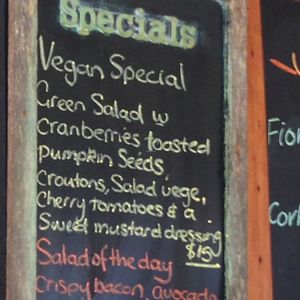 Specials
Vegan Special
Green Salad w
Cranberries toasted
Pumpkin Seeds,
Croutons, Salad vege,
Cherry tomatoes & a
Sweet mustard dressing.
$15
Salad of the day
Crispy bacon, avocado
Fion
Cork